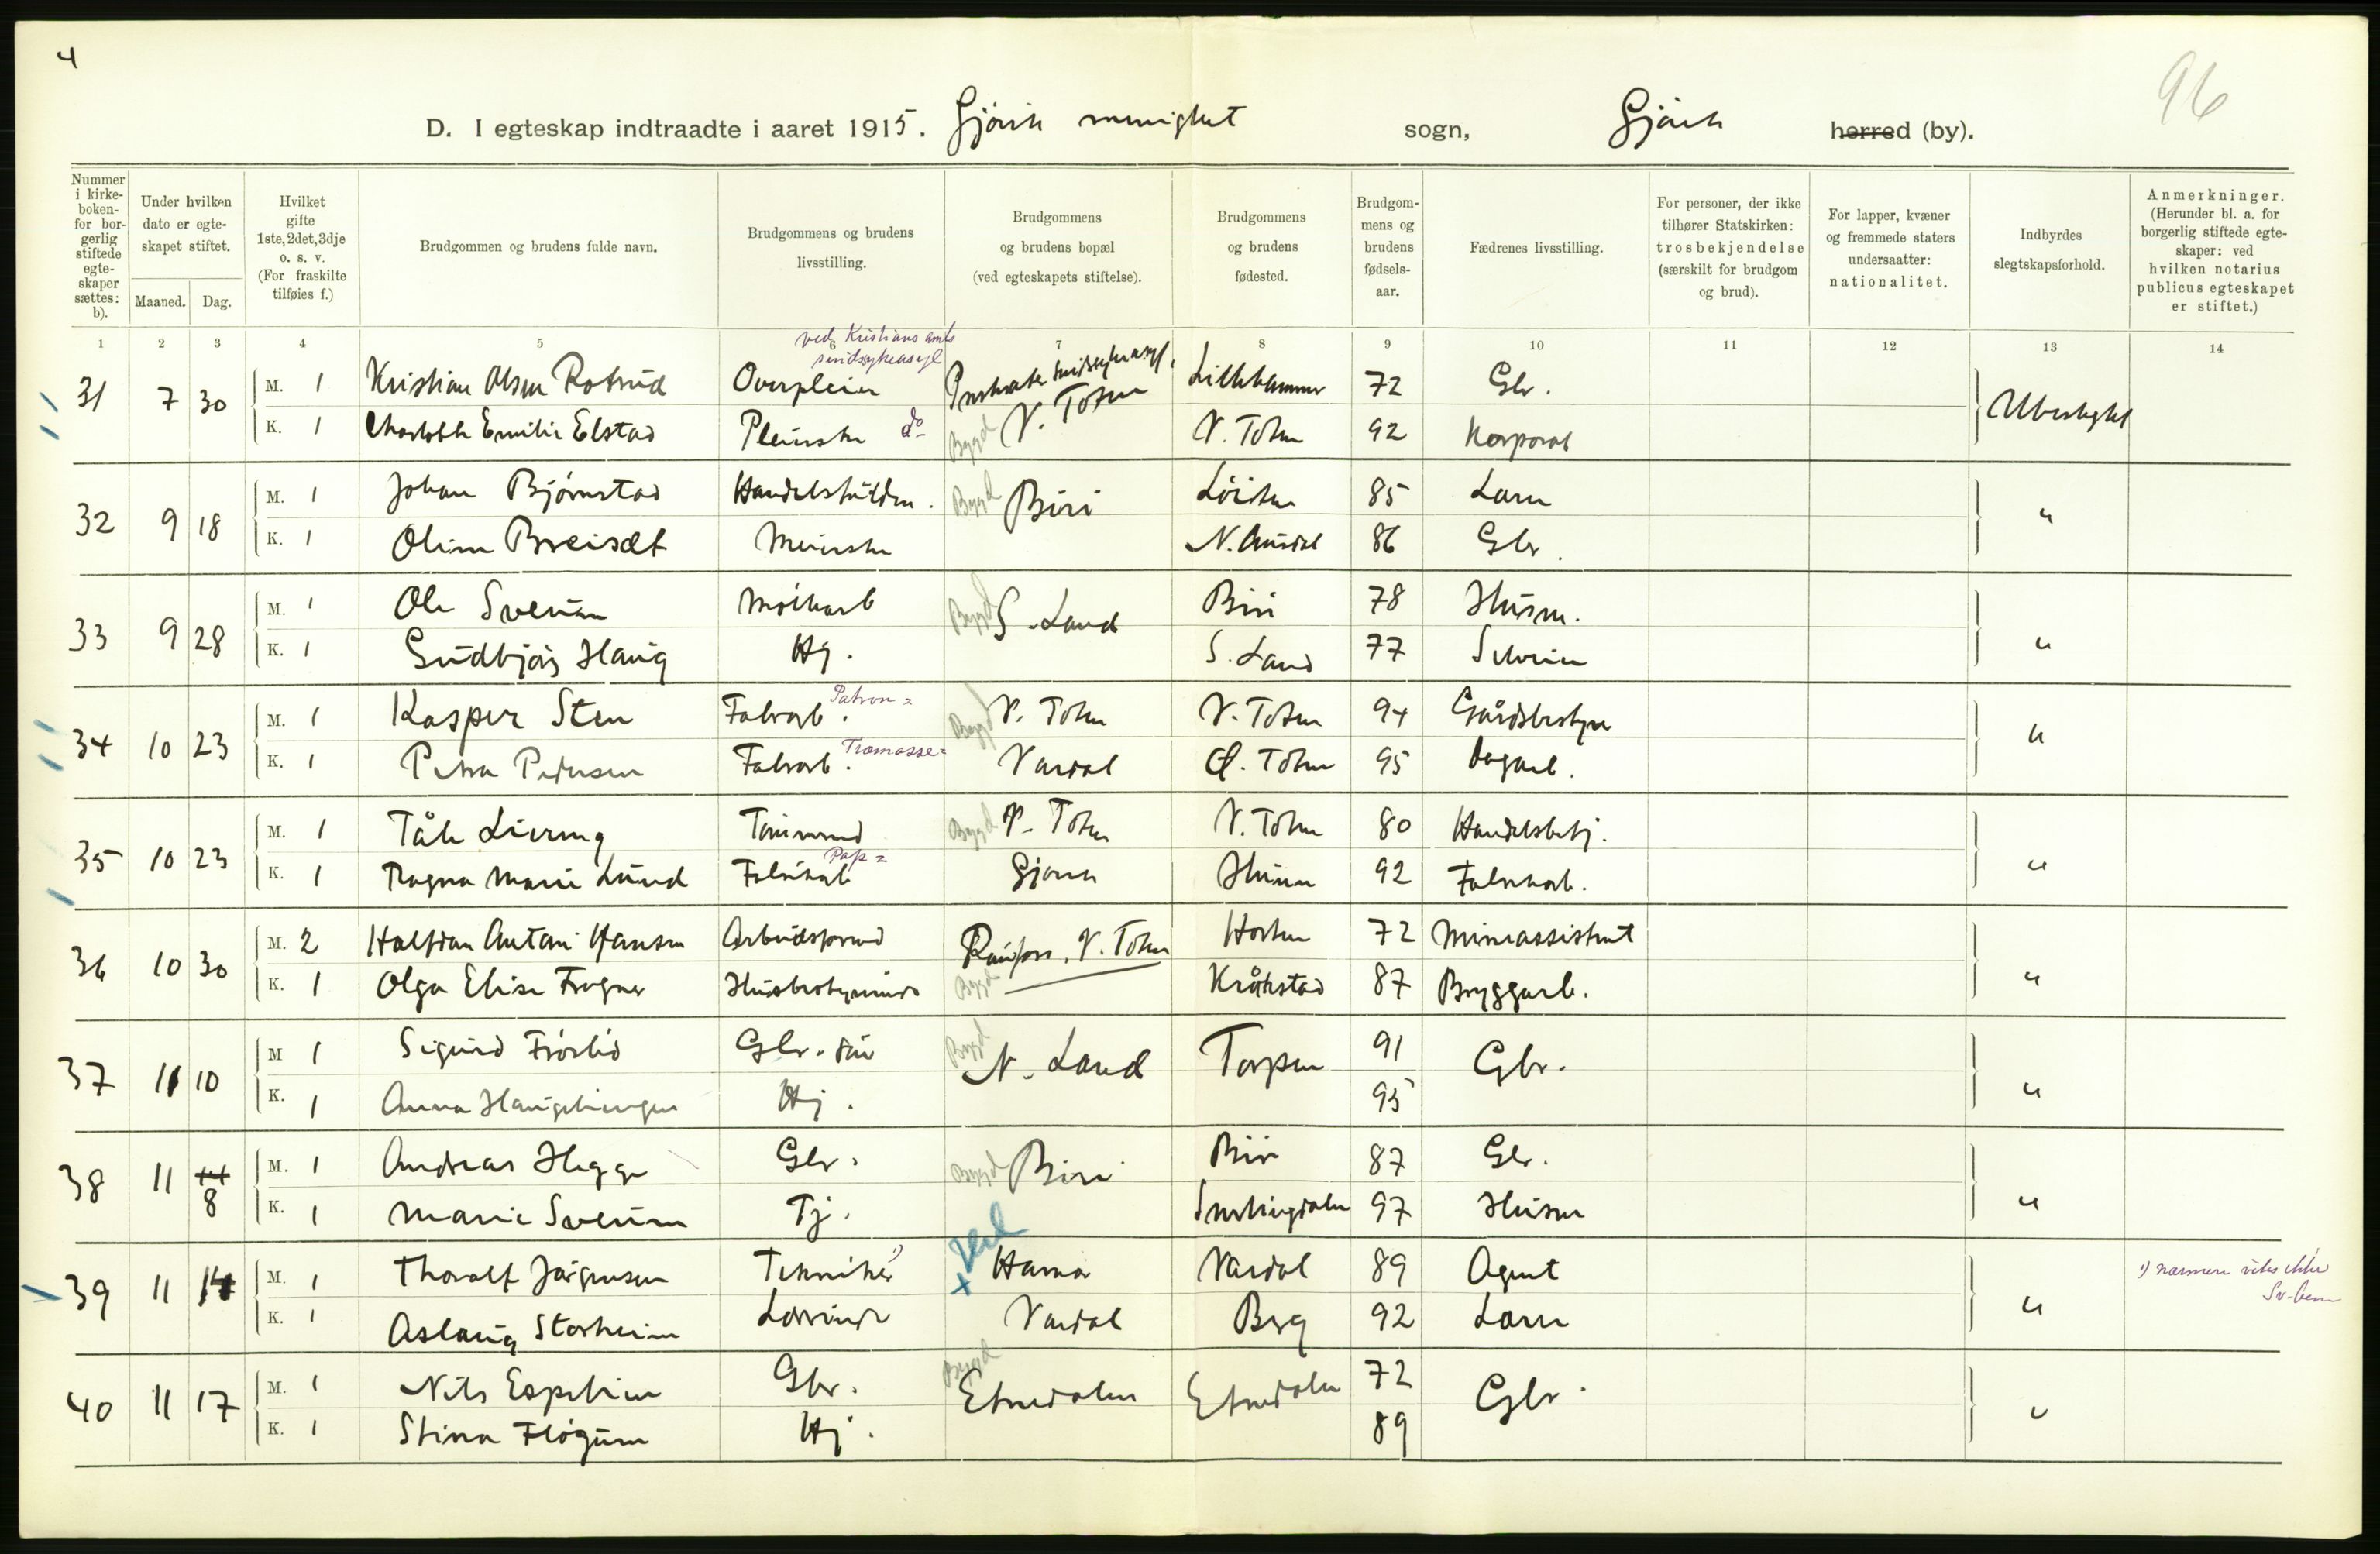 4
96
D. I egteskap indtraadte i aaret 1915. Gjøvik menighet sogn, Gjøvik herred (by).
Nummer i kirkeboken- for borgerlig stiftede egteskaper sættes: b).
Under hvilken dato er egteskapet stiftet.
Maaned. Dag.
Hvilket gifte 1ste, 2det, 3dje o. s. v. (For fraskilte tilføies f.)
Brudgommen og brudens fulde navn.
Brudgommens og brudens livsstilling.
Brudgommens og brudens bopæl (ved egteskapets stiftelse).
Brudgommens og brudens fødested.
Brudgommens og brudens fødselsaar.
Fædrenes livsstilling.
For personer, der ikke tilhører Statskirken: trosbekjendelse (særskilt for brudgom og brud).
For lapper, kvæner og fremmede staters undersaatter: nationalitet.
Indbyrdes slegtskapsforhold.
Anmerkninger. (Herunder bl. a. for borgerlig stiftede egteskaper: ved hvilken notarius publicus egteskapet er stiftet.)
1 2 3 4 5 6 7 8 9 10 11 12 13 14
ved Kristians amts sindsykeasyl
31 7 30 M. 1 Kristian Olsen Rotrud Overpleier sindsykeasyl, Lillehammer 72 Gbr. Ubeslegtet
K. 1 Charlotte Emilie Elstad Pleierske do Bygd V. Toten V. Toten 92 Korporal
32 9 18 M. 1 Johan Bjørnstad Handelsfuldm. Bygd Biri Løiten 85 Lærer "
K. 1 Oline Breisæt Meierske N. Aurdal 86 Gbr.
33 9 28 M. 1 Ole Sveum Møllearb Bygd S. Land Biri 78 Husm. "
K. 1 Gudbjør Haug Hj. S. Land 77 Selveier
34 10 23 M. 1 Kasper Sten Fabrarb. Patron= Bygd V. Toten V. Toten 94 Gårdsbestyrer "
K. 1 Petra Pedersen Fabrarb. Træmasse= Vardal Ø. Toten 95 Dagarb.
35 10 23 M. 1 Tåle Liering Tømmermd Bygd V. Toten V. Toten 80 Handelsbetj. "
K. 1 Ragna Marie Lund Fabrikarb Pap= Gjøvik Hunn 92 Fabrikarb.
36 10 30 M. 2 Halfdan Antani Hansen Arbeidsformd Raufoss, V. Toten Horten 72 Mineassistent "
K. 1 Olga Elise Fragner Husbestyrerinde Bygd Kråkstad 87 Bryggarb.
37 11 10 M 1 Sigurd Frøslid Gbr. søn Bygd N. Land Torpen 91 Gbr. "
K. 1 Anna Haugehengen Hj. 95
38 11 8 M. 1 Andreas Hegge Gbr. Bygd Biri Biri 87 Gbr. "
K. 1 Marie Sveum Tj. Snertingdalen 97 Husm
39 11 14 M. 1 Thoralf Jørgensen Tekniker 1) x Hamar Vardal 89 Agent " 1) nærmere vites ikke
K. 1 Aslaug Storheim Lærerinde Vardal Berg 92 Lærer
40 11 17 M. 1 Nils Espelien Gbr. Bygd Etnedalen Etnedalen 72 Gbr. "
K. 1 Stina Fløgum Hj. 89